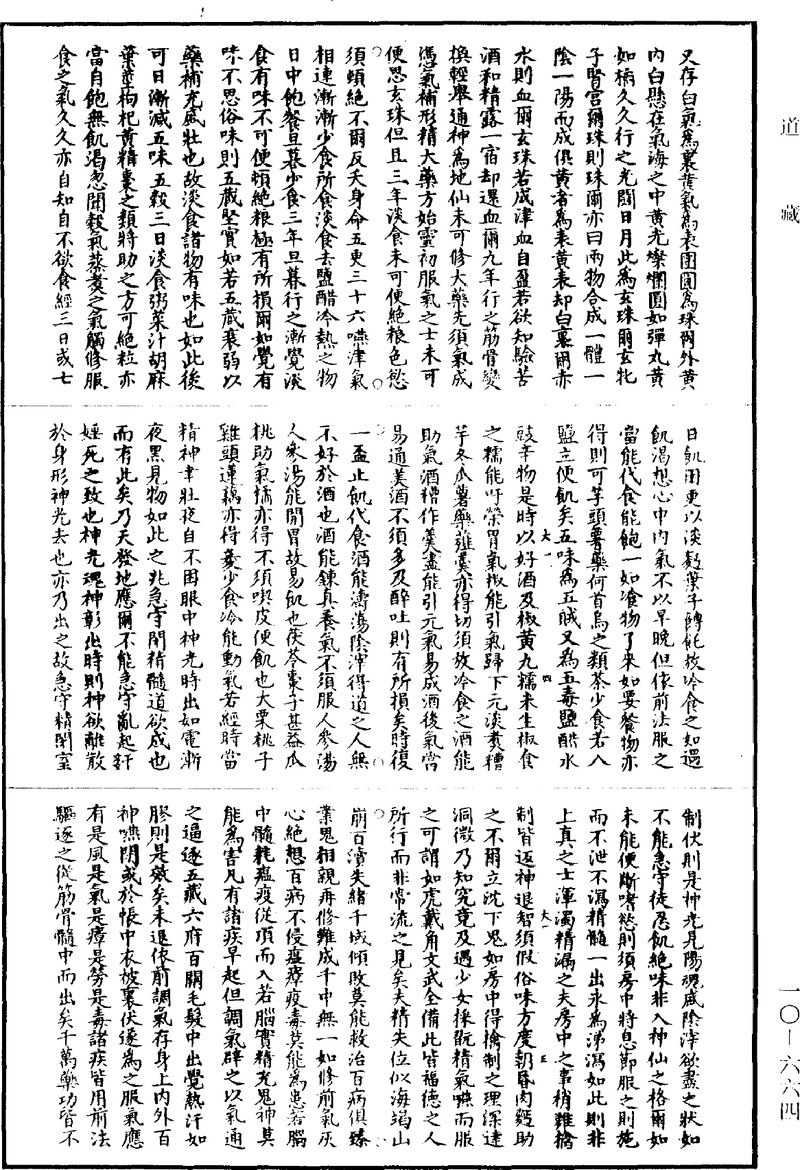 道藏
又存白氣為裏黃氣為表團圓為珠爾外黃
內白懸在氣海之中黃光燦爛圓如彈丸黃
如橘久久行之光關日月此為玄珠爾玄牝
子腎宮爾珠則珠爾亦曰兩物合成一體一
陰一陽而成俱黃者為表黃表却白裏爾亦
水則血爾玄珠若成津血自盈若欲知驗苦
酒和精露一宿却還血爾九年行之筋骨變
換輕舉通神為地仙未可修大藥先須氣成
憑氣補形精大藥方始靈初服氣之士未可
便思玄珠但且三年淡食未可便絕粮色慾
須頓絕不爾反夭身命五更三十六嚥津氣
相連漸漸少食所食淡食去鹽醋冷熱之物
日中飽餐旦暮少食三年旦暮行之漸覺淡
食有味不可便頓絕粮極有所損爾如覺有
味不思俗味則五藏堅實如若五藏衰弱以
藥補充盛壯也故淡食諸物有味也如此後
可日漸減五味五穀三日淡食粥菜汁胡麻
葉並枸杞黃精棗之類將助之方可絕粒亦
當自飽無飢渴忽聞穀氣蒸煮之氣觸修服
食之氣久久亦自知自不欲食經三日或七
日飢困更以淡麨菓子餺飥放冷食之如遇
飢渴想心中內氣不以早晚但依前法服之
當能代食能飽一如飡物了來如要餐物亦
得則可芋頭薯藥何首烏之類茶少食若入
鹽立便飢矣五味為五賊又為五毒鹽醋水
豉辛物是時以好酒及椒黃丸糯米生椒食
之糯能呼榮胃氣椒能引氣歸下元淡煮糟
芋冬瓜薯藥薤羹亦得切須放冷食之酒能
助氣酒糟作羹盡能引元氣易成酒後氣當
易通美酒不須多及醉吐則有所損矣時復
一盃止飢代食酒能濤蕩除滓得道之人無
不好於酒也酒能鍊真養氣不須服人參湯
人參湯能開胃故易飢也茯苓棗子甚益瓜
桃助氣橘亦得不須喫皮便飢也大栗桃子
雞頭蓮藕亦得羹少食冷能動氣若經時當
精神幸壯夜自不困眼中神光時出如電漸
夜黑見物如此之兆急守閉精髓道欲成也
而有此矣乃天發地應爾不能急守亂起姧
婬死之致也神光魂神彰出時則神欲離散
於身形神光去也亦乃出之故急守精閉室
制伏則是神光見陽魂盛陰滓欲盡之狀如
不能急守徒忍飢絕味非入神仙之格爾如
未能便斷嗜慾則須房中將息節服之則施
而不泄不瀉精髓一出永為沸瀉如此則非
上真之士渾濁精漏之夫房中之事稍難擒
制皆迈神退智須假俗味方慶朝昏肉麫助
之不爾立沈下鬼如房中得擒制之理深達
洞微乃知究竟及遇少女採翫精氣嚥而服
之可謂如虎戴角文武全備此皆福德之人
所行而非常流之見矣夫精失位似海竭山
崩百瀆失緒千城傾敗莫能救治百病俱臻
業鬼相親再修難成千中無一如修前氣灰
心絕想百病不侵瘟瘴疫毒莫能為患若腦
中髓耗瘟疫從項而入若腦實精光鬼神莫
能為害凡有諸疾早起但調氣碎之以氣通
之逼逐五藏六府百關毛髮中出覺熱汗如
膠則是效矣未退依前調氣存身上內外百
神嚥閉或於帳中衣被裏伏逐為之服氣應
有是風是氣是瘴是勞是毒諸疾皆用前法
驅逐之從筋骨髓中而出矣千萬藥功皆不
一〇—六六四